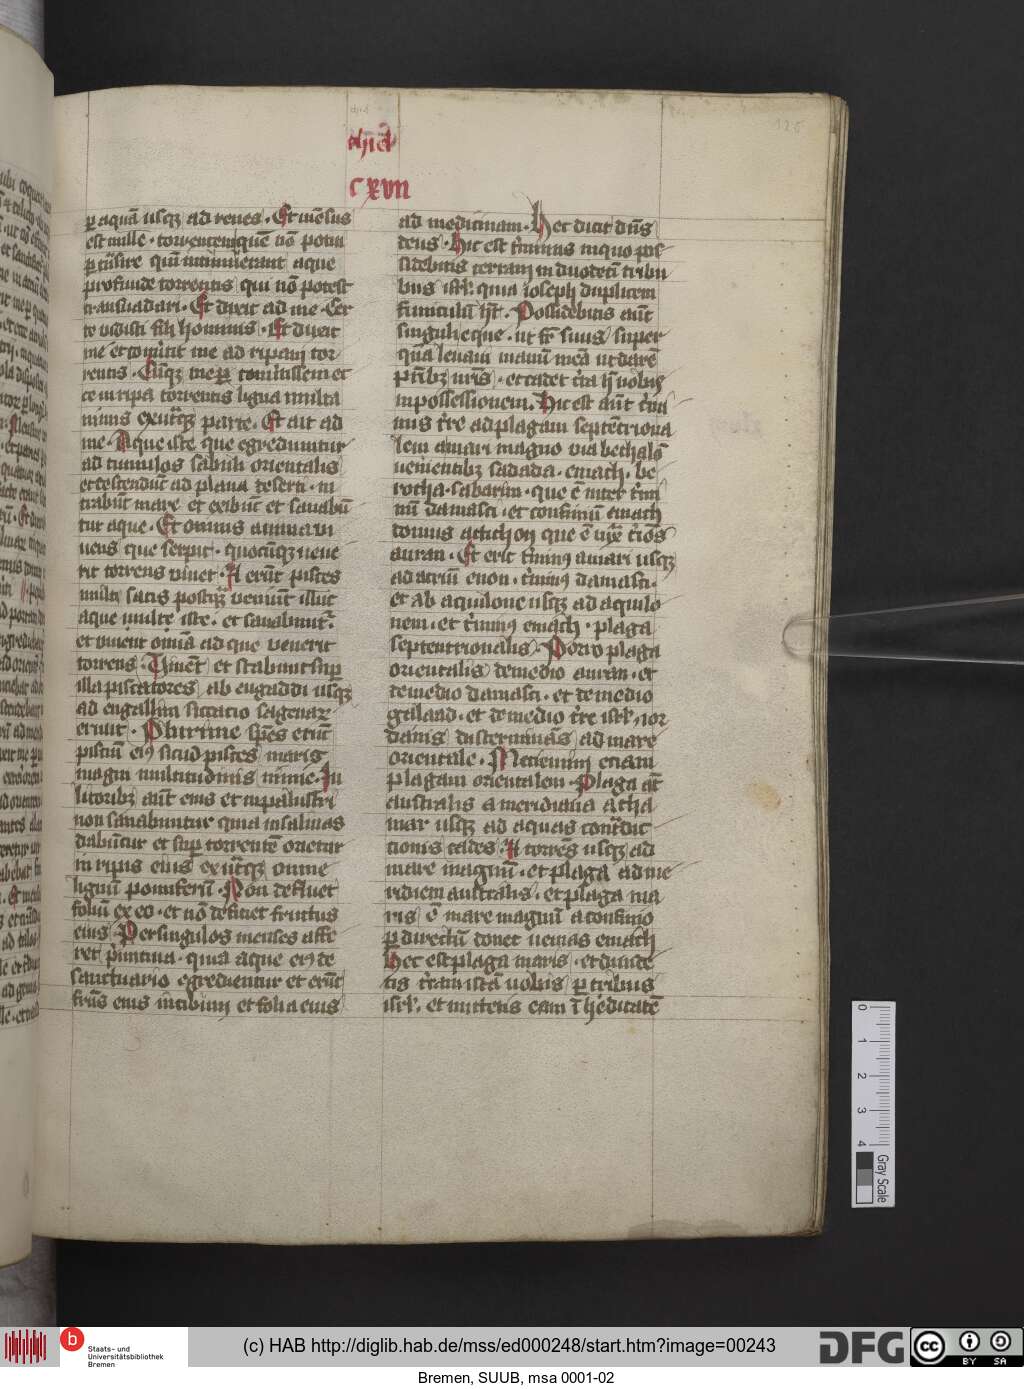 chiel
CXVII
p aquā usqz ad renes. Et mēsus
est mille. torrentem quē nō potui
p trāsire qm̄ intumuerant aque
profunde torrentis qui nō potest
transuadari. Et dixit ad me. Cer
te vidisti fili hominis. Et duxit
me et cōuertit me ad ripam tor
rentis. Cūqz me cōuertissem et
ce in ripa torrentis ligna multa
nimis ex utraqz parte. Et ait ad
me. Aque iste que egrediuntur
ad tumulos sabuli orientalis
et descendūt ad plana deserti. in
trabūt mare et exibūt et sanabū
tur aque. Et omnis anima vi
uens que serpit. quocūqz uene
rit torrens viuet. Et erūt pisces
multi satis postqz venerūt illuc
aque multe iste. et sanabuntur.
et viuent omīa ad que venerit
torrens. et stabunt sup
illa piscatores ab engaddi usqz
ad engallim siccatio sagenar
erunt. Plurime spēs erūt
pisciū eius sicud pisces maris
magni multitudinis nimie. In
litoribz aūt eius et in palustri
non sanabuntur quia in salinas
dabūtur et sup torrentē orietur
in ripis eius ex utqz omne
lignū pomiferū. Non defluet
foliū ex eo. et nō deficiet fructus
eius. Per singulos menses affe
ret primitiua. quia aque eius de
sanctuario egredientur et erūt
frūs eius in cibum et folia eius
ad medicinam. Hec dicit dn̄s
deus. Hic est tminus in quo pos
sidebitis terram in duodecī tribu
bus isrl. quia ioseph duplicem
funiculū ht. Possidebitis aūt
singuli eque. ut fr̄ suus super
quā leuaui manū meā ut darē
p̄ribz uris. et cadet tra h uobis
in possessionem. Hic est aūt tmi
nus tre ad plagam septētriona
lem a mari magno via bethalō
uenientibz sadada. emach. be
rotha. sabarim. que ē inter tmi
nū damasci. et confiniū emach
domus atichon que ē iux tmos
auran. Et erit tminus a mari usqz
ad atriū enon. tminus damasci.
et ab aquilone usqz ad aquilo
nem. et tminus emach. plaga
septentrionalis. Porro plaga
orientalis de medio auran. et
de medio damasci. et de medio
galaad. et de medio tre isrl. ior
danis disterminās ad mare
orientale. Metiemini etiam
plagam orientalem. Plaga aūt
australis a meridiana a tha
mar usqz ad aquas contdic
tionis cades. Et torrēs usqz ad
mare magnū. et plaga ad me
ridiem australis. et plaga ma
ris ē mare magnū a confinio
p directū donec uenias emach
Hec est plaga maris. et diuide
tis tram istā uobis p tribus
isrl. et mittetis eam ī heditatē
0 1 2 3 4
Gray Scale
b Staats- und
Universitätsbibliothek
Bremen
(c) HAB http://diglib.hab.de/mss/ed000248/start.htm?image=00243
DFG
cc BY SA
Bremen, SUUB, msa 0001-02